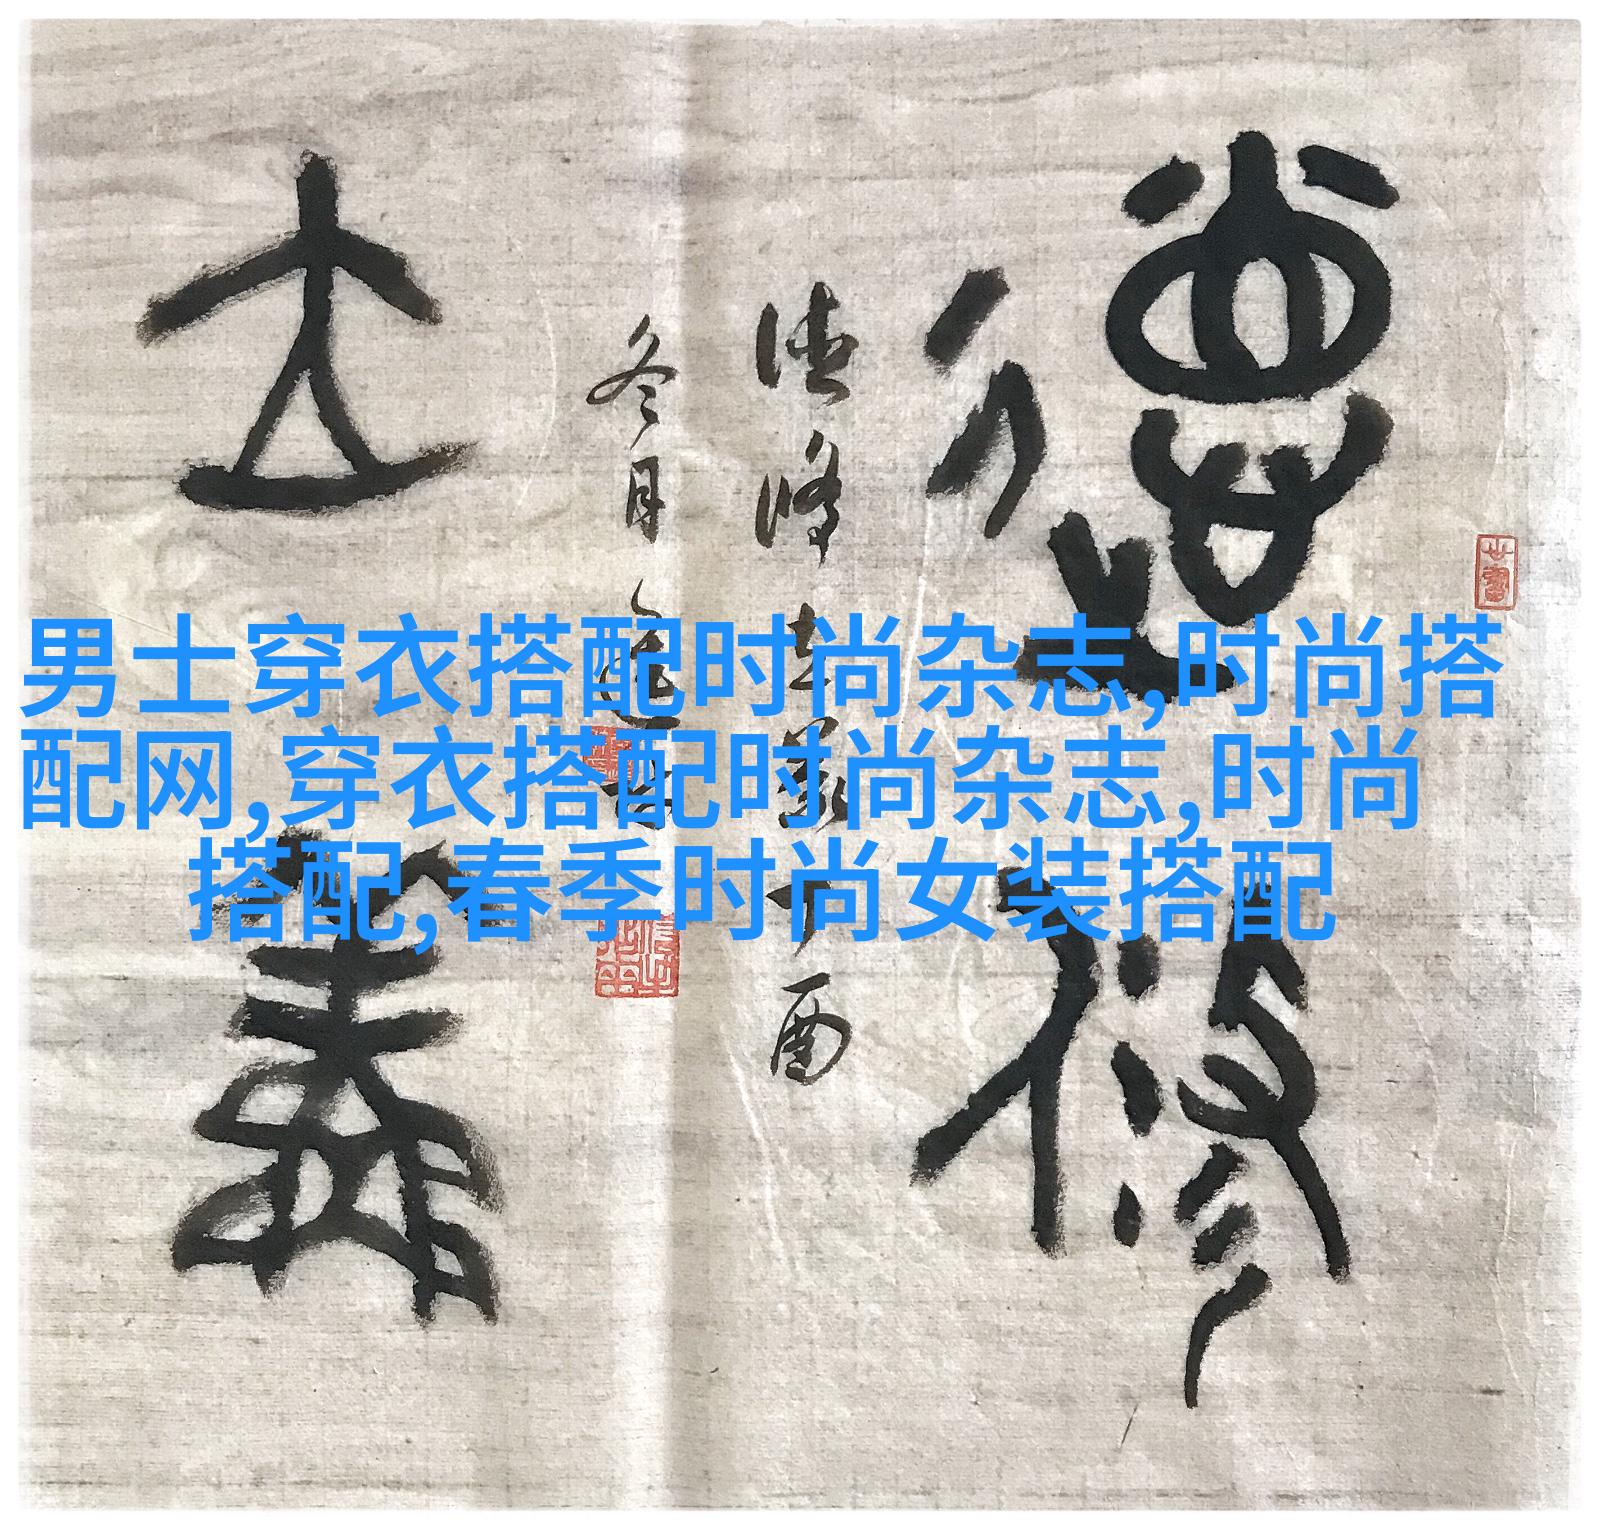 男士穿衣搭配时尚杂志,时尚搭
配网,穿衣搭配时尚杂志,时尚
搭配,春季时尚女装搭配
德修
立義
德修立義丁酉
冬月